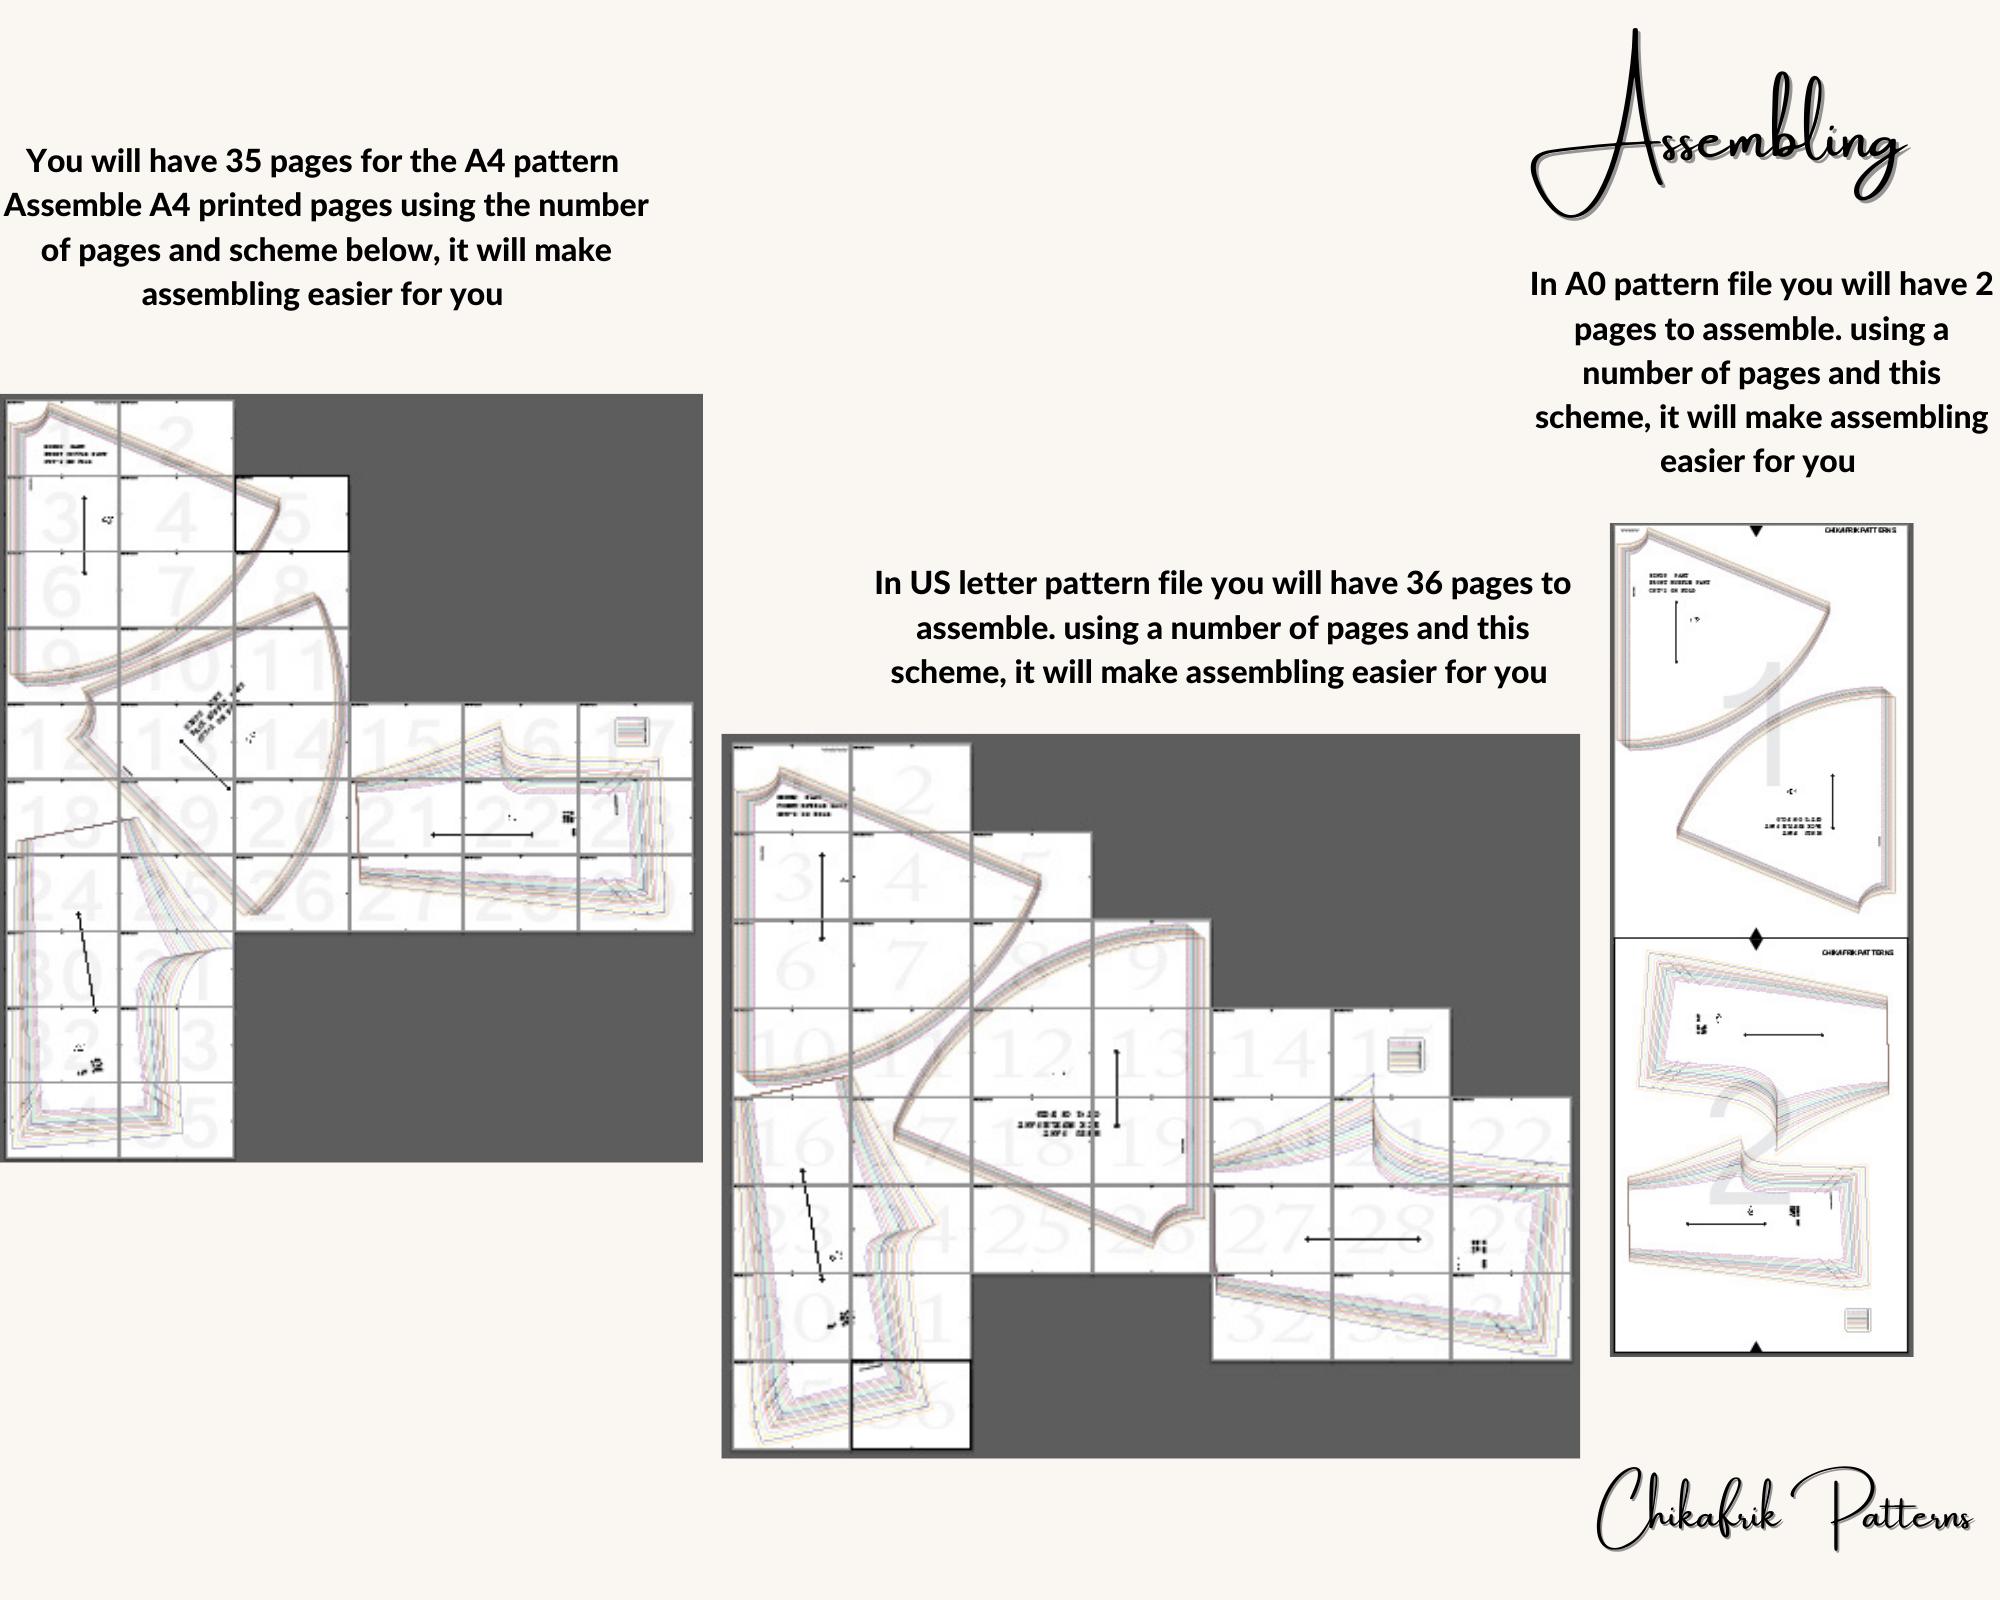 Assembling
You will have 35 pages for the A4 pattern
Assemble A4 printed pages using the number
of pages and scheme below, it will make
assembling easier for you
In A0 pattern file you will have 2
pages to assemble. using a
number of pages and this
scheme, it will make assembling
easier for you
In US letter pattern file you will have 36 pages to
assemble. using a number of pages and this
scheme, it will make assembling easier for you
1 2
3 4 5
6 7 8
9 10 11
12 13 14 15 16 17
18 19 20 21 22 23
24 25 26 27 28 29
30 31
32 33
34 35
1 2
3 4 5
6 7 8 9
10 11 12 13 14 15
16 17 18 19 20 21 22
23 24 25 26 27 28 29
30 31 32 33 34
35 36
CHIKAFRIKPATTERNS
1
CHIKAFRIKPATTERNS
2
Chikafrik Patterns